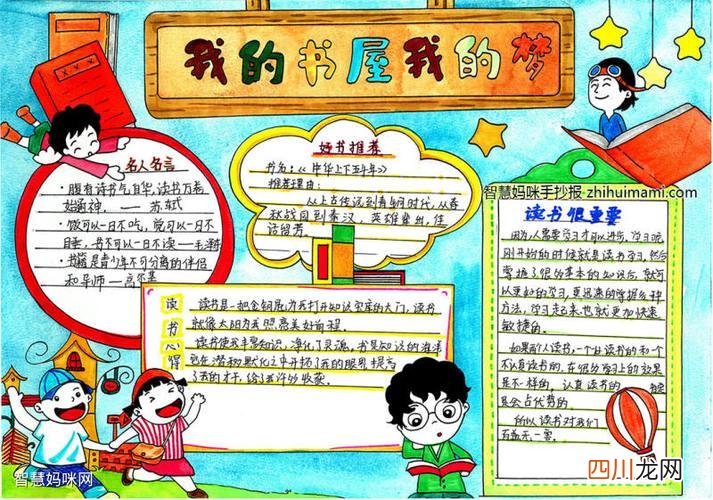 我的书屋我的梦
名人名言
·腹有诗书气自华,读书万卷
始通神。——苏轼
·饭可以一日不吃,觉可以一日不
睡,书不可以一日不读——毛泽东
·书籍是青少年不可分离的伴侣
和导师——高尔基
好书推荐
书名:《中华上下五千年》
推荐理由:
从上古传说到青铜时代,从春
秋战国到秦汉,英雄辈出,佳
话留芳。
智慧妈咪手抄报-zhihuimami.com
读书很重要
因为,人需要学习才可以进步,学习呢,
刚开始的时候就是读书学习,然后
掌握了很多基本的知识后,就可
以更好的学习,更迅速的掌握各种
方法,学习起来也就更加快速
敏捷的。
如果两个人读书,一个好读书的和一个
不认真读书的,在很多学习上的效果
是不一样的。认真读书的
是会占优势的。
所以读书对我们
百益无一害。
读书心得
读书是一把金钥匙,为我打开知识宝库的大门,读书
就像太阳为我照亮美好前程。
读书使我丰富知识,净化了灵魂,书是知识的海洋
它在潜移默化之中开拓了我的眼界提高
了我的才干,给了我许多收获。
智慧妈咪网
四川龙网